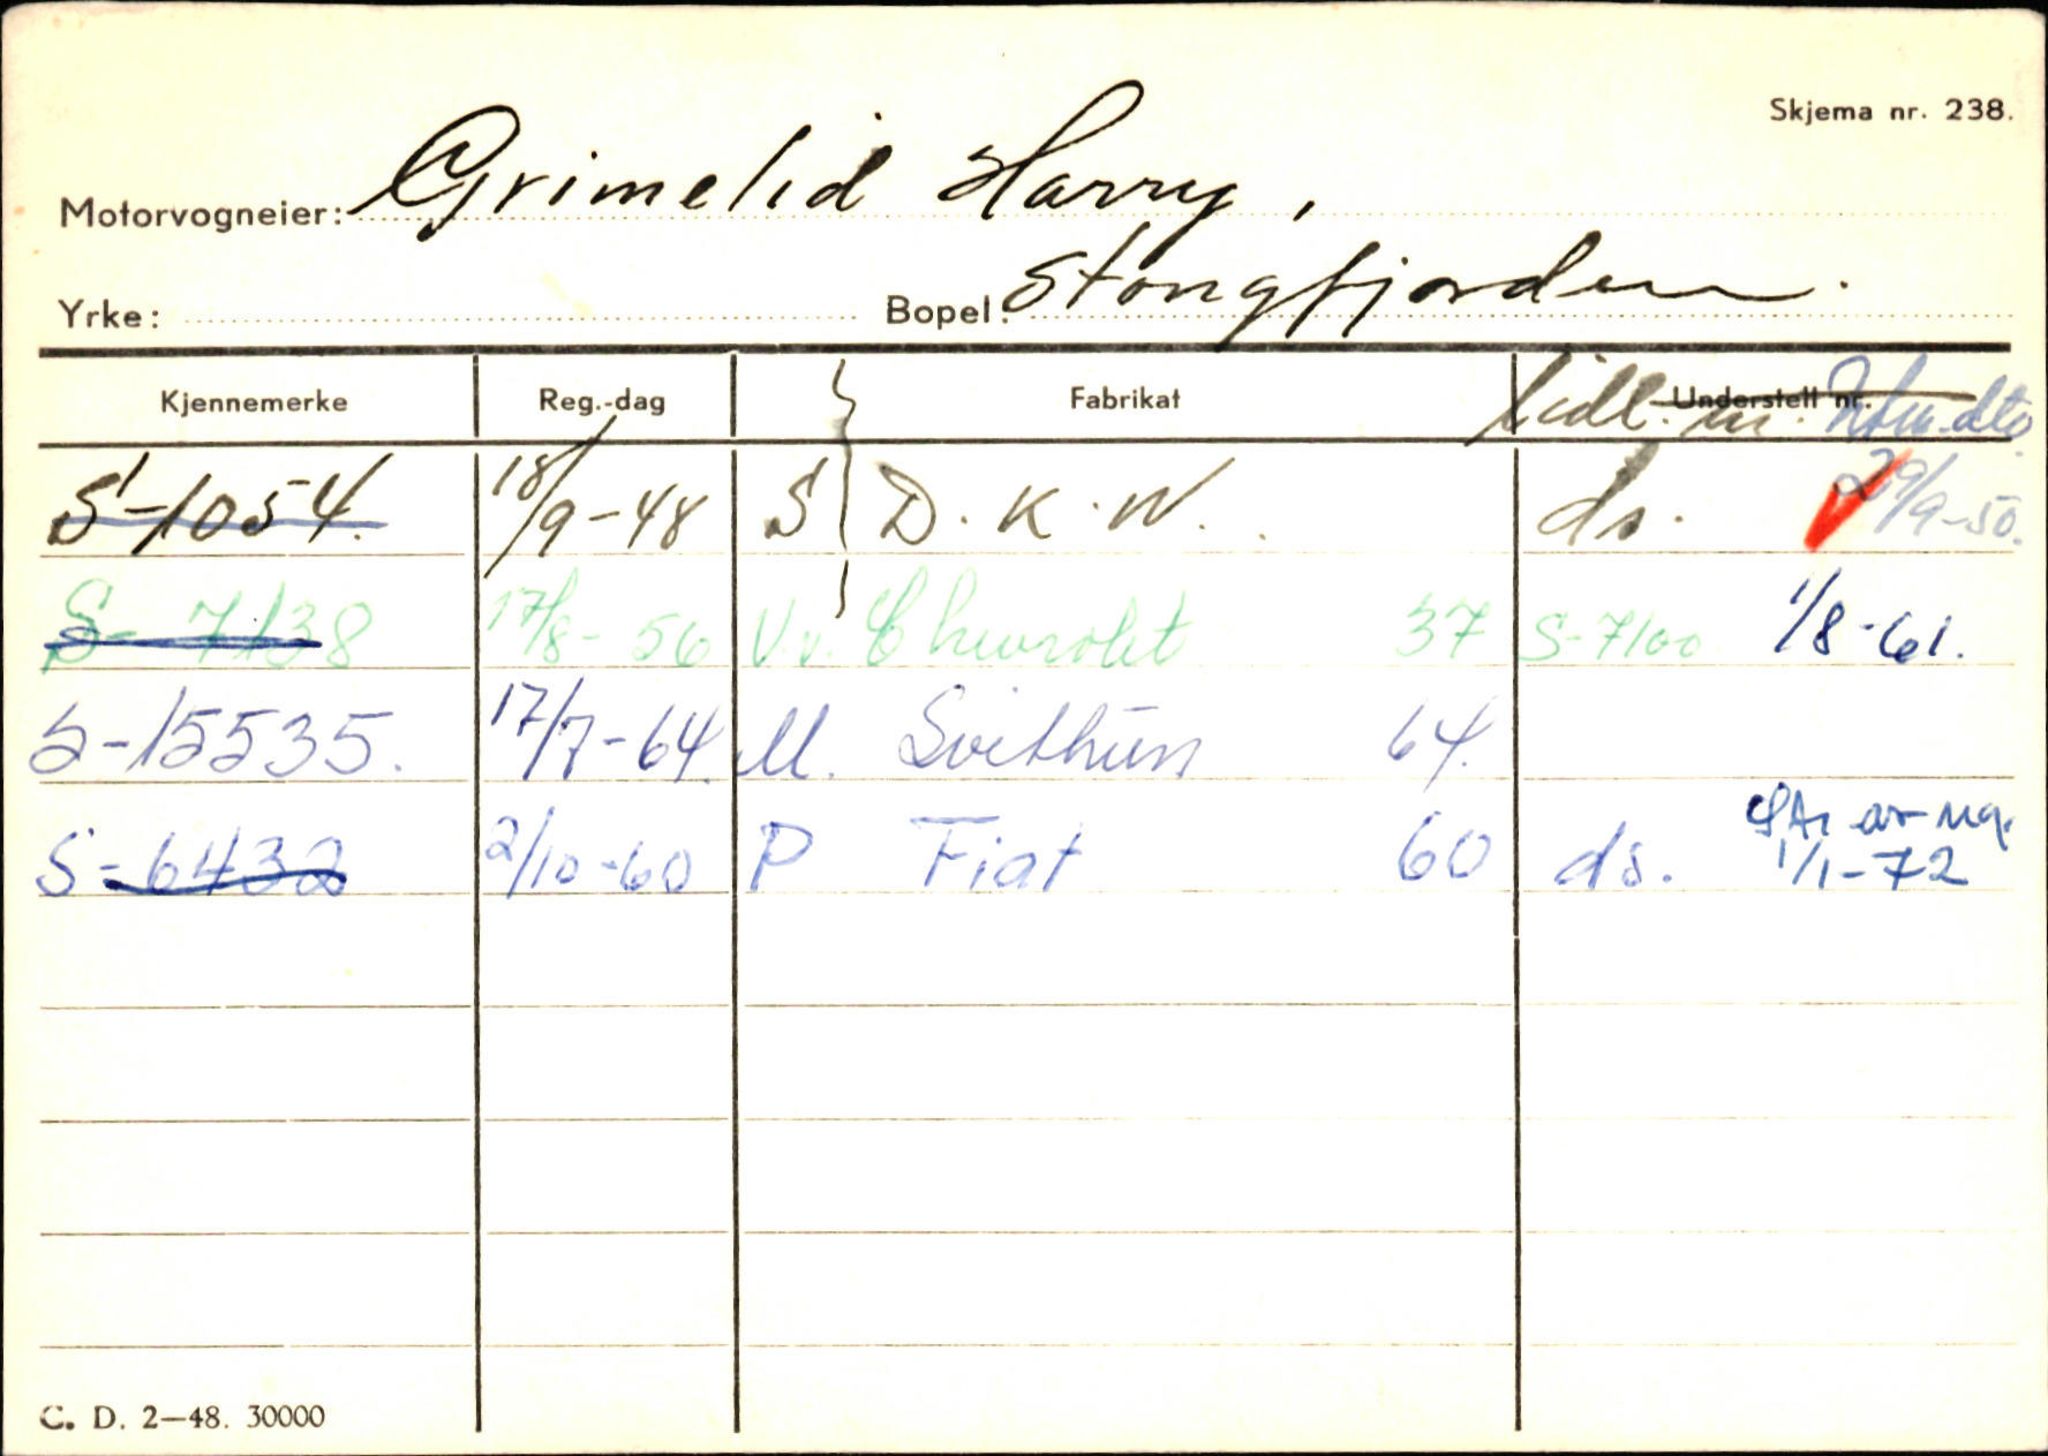 Skjema nr. 238.
Motorvogneier: Grimelid Harry,
Yrke: Bopel: Stongfjorden.
Kjennemerke Reg.-dag Fabrikat Understell nr. Tidl. nr. Utm. dto.
S-1054. 18/9-48 S D.K.W. ds. 29/9-50.
S-7138 17/8-56 V.v. Chevrolet 37 S-7100 1/8-61.
S-15535. 17/7-64. M. Svithun 64.
S-6432 2/10-60 P Fiat 60 ds. 1/1-72
C. D. 2—48. 30000